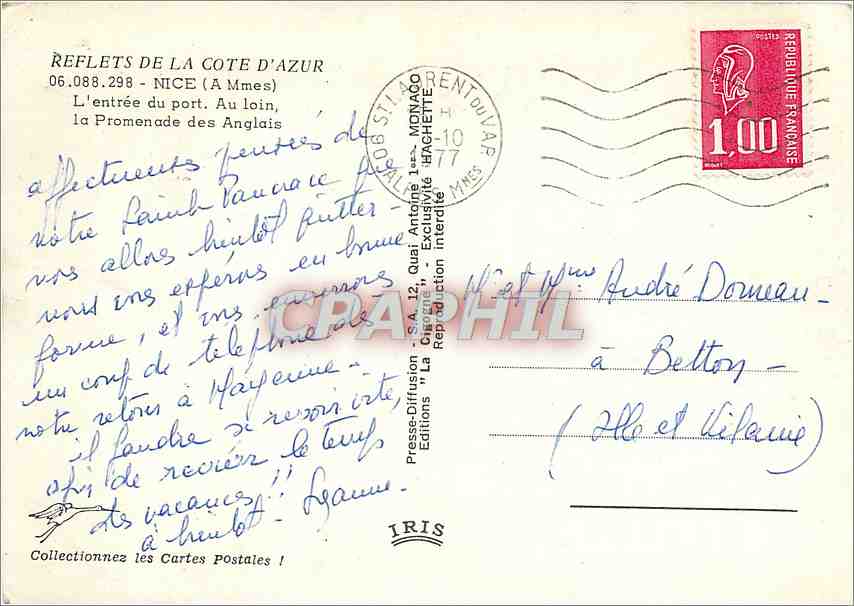 REFLETS DE LA COTE D'AZUR
06.088.298 - NICE (A Mmes)
L'entrée du port. Au loin,
la Promenade des Anglais
affectueuses pensées de
notre Saint Pancrace que
nous allons bientôt quitter -
nous vous espérons en bonne
forme, et vous enverrons
un coup de téléphone dès
notre retour à Mayenne -
il faudra se revoir vite,
afin de revivre le temps
des vacances !!
à bientôt -
Collectionnez les Cartes Postales !
IRIS
Presse-Diffusion - S.A. 12, Quai Antoine 1er - MONACO
Editions "La Cigogne" - Exclusivité HACHETTE
Reproduction interdite
06 ST LAURENT DU VAR
-10
77
ALPES Mmes
POSTES
REPUBLIQUE FRANÇAISE
1,00
CPAPHIL
Mr et Mme André Dorneau -
à Betton -
(Ille et Vilaine)